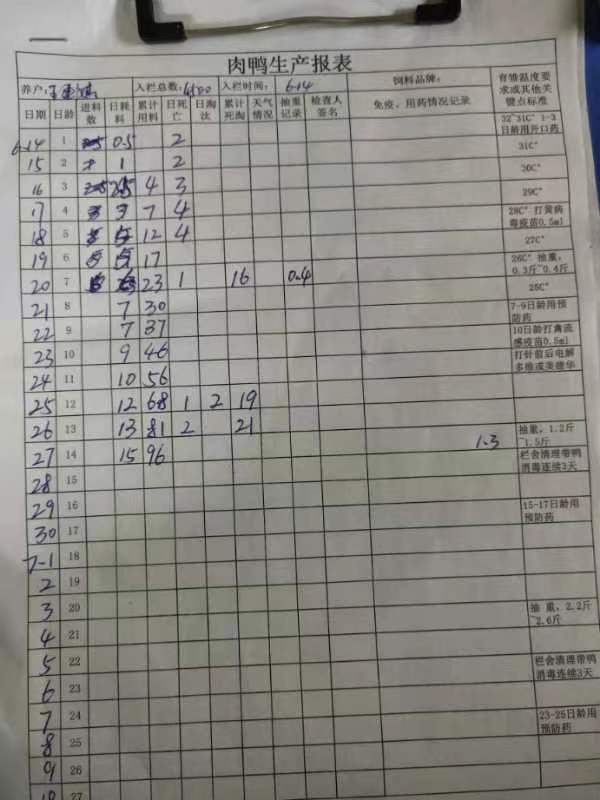 肉鸭生产报表
养户: 入栏总数: 入栏时间: 6.14 饲料品牌: 育雏温度要求或其他关键点标准
日期 日龄 进料数 日耗料 累计用料 日死亡 日淘汰 累计死淘 天气情况 抽重记录 检查人签名 免疫、用药情况记录
6.14 1 0.5 2 32~31C° 1-3日龄用开口药
15 2 1 2 31C°
16 3 4 3 30C°
17 4 3 7 4 29C°
18 5 5 12 4 28C° 打黄病毒疫苗0.5ml
19 6 5 17 27C°
20 7 6 23 1 16 0.4 26C° 抽重,0.3斤~0.4斤
25C°
21 8 7 30 7-9日龄用预防药
22 9 7 37 10日龄打禽流感疫苗0.5ml
23 10 9 46 打针前后电解多维或
24 11 10 56
25 12 12 68 1 2 19
26 13 13 81 2 21 抽重,1.2斤~1.5斤
27 14 15 96 1.3 栏舍清理带鸭消毒连续3天
28 15
29 16 15-17日龄用预防药
30 17
7-1 18
2 19
3 20 抽重,2.2斤~2.6斤
4 21
5 22 栏舍清理带鸭消毒连续3天
6 23
7 24 23-25日龄用预防药
8 25
9 26
10 27